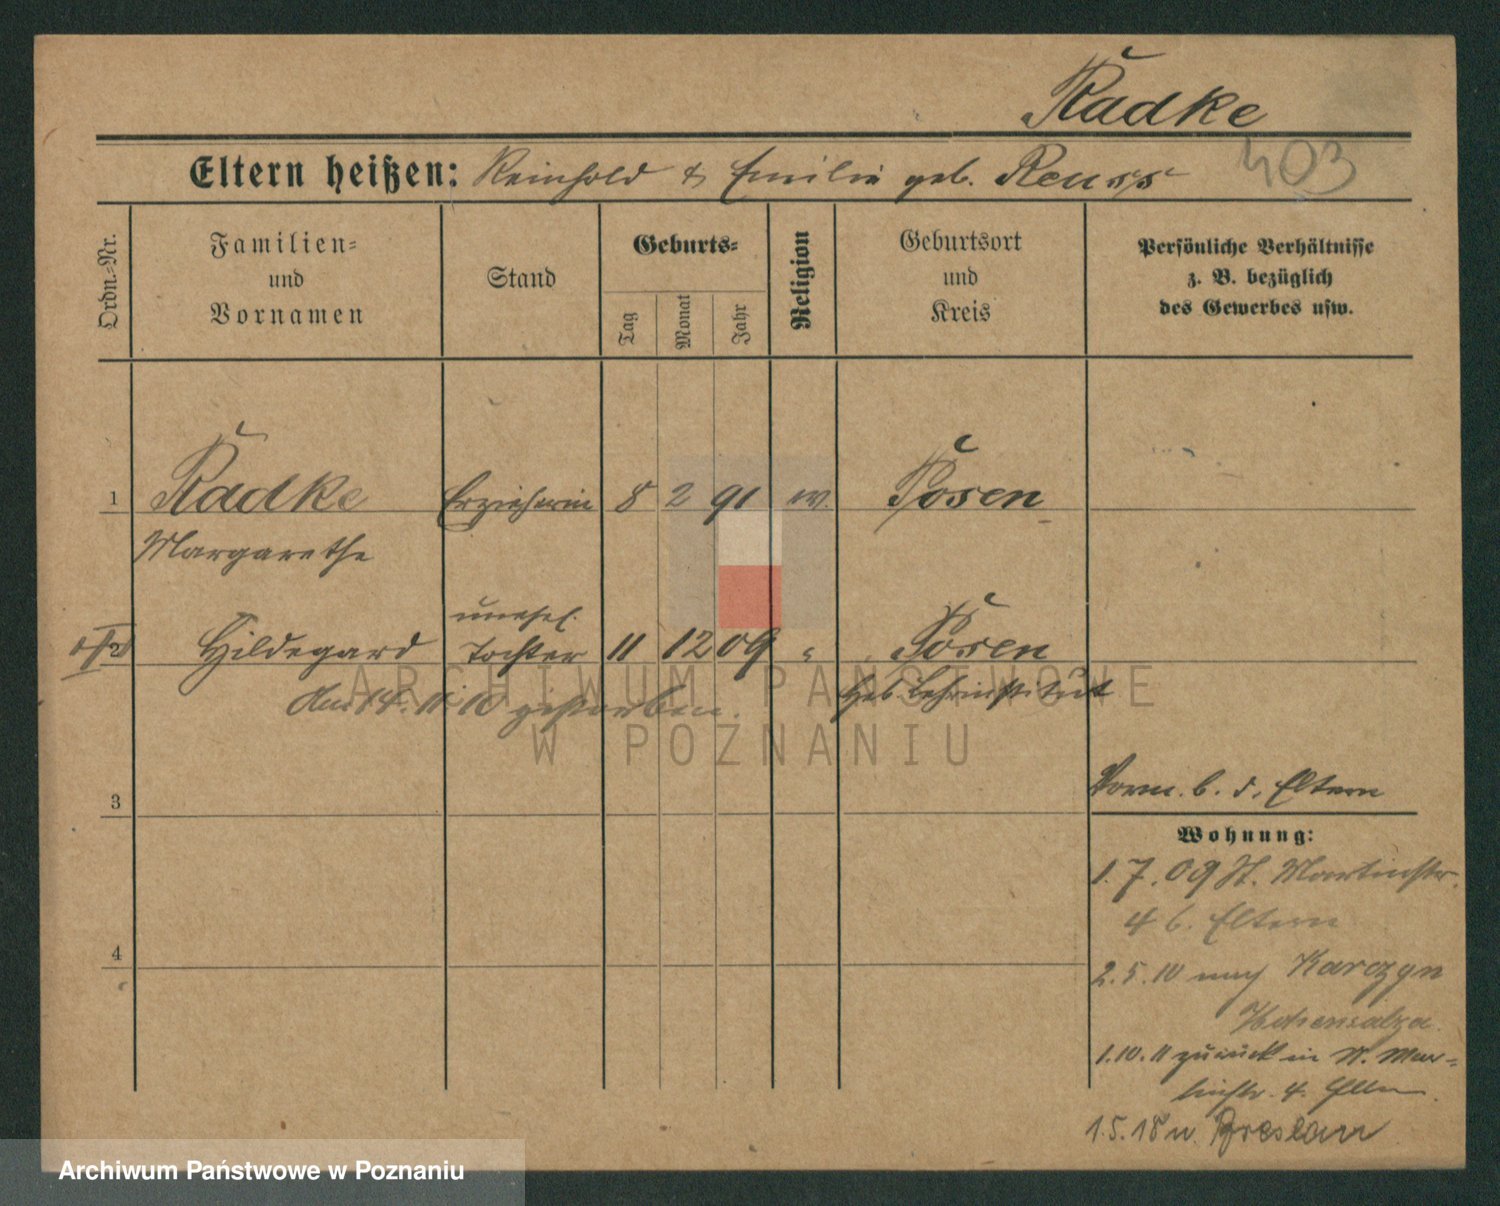 Radke
Eltern heißen: Reinhold & Emilie geb. Reuss 403
Ordn.-Nr.
Familien-
und
Vornamen
Stand
Geburts-
Tag
Monat
Jahr
Religion
Geburtsort
und
Kreis
Persönliche Verhältnisse
z. B. bezüglich
des Gewerbes usw.
1 Radke Erzieherin 8 2 91 ev. Posen
Margarethe
unehel.
2 Hildegard Tochter 11 12 09 " Posen
Am 14.11.10 gestorben. Heb. Lehrinstitut
3
Vorm. b. d. Eltern
Wohnung:
1.7.09 St. Martinstr.
4 b. Eltern
4
2.5.10 nach Karczyn
Hohensalza
1.10.11 zurück in St. Mar-
tinstr. 4. Eltern.
1.5.18 n. Breslau
ARCHIWUM PAŃSTWOWE
W POZNANIU
Archiwum Państwowe w Poznaniu